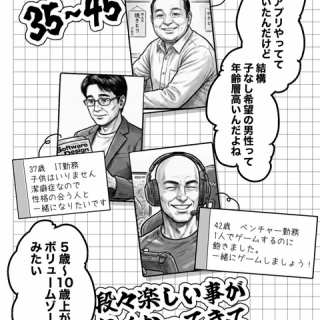 アプリやってて
いたんだけど
結構
子なし希望の男性って
年齢層高いんだよね
35~45
Software
Design
37歳 IT勤務
子供はいりません
潔癖症なので
性格の合う人と
一緒になりたいです
42歳 ベンチャー勤務
1人でゲームするのに
飽きました。
一緒にゲームしましょう!
5歳~10歳上が
ボリュームゾー
みたい
段々楽しい事が